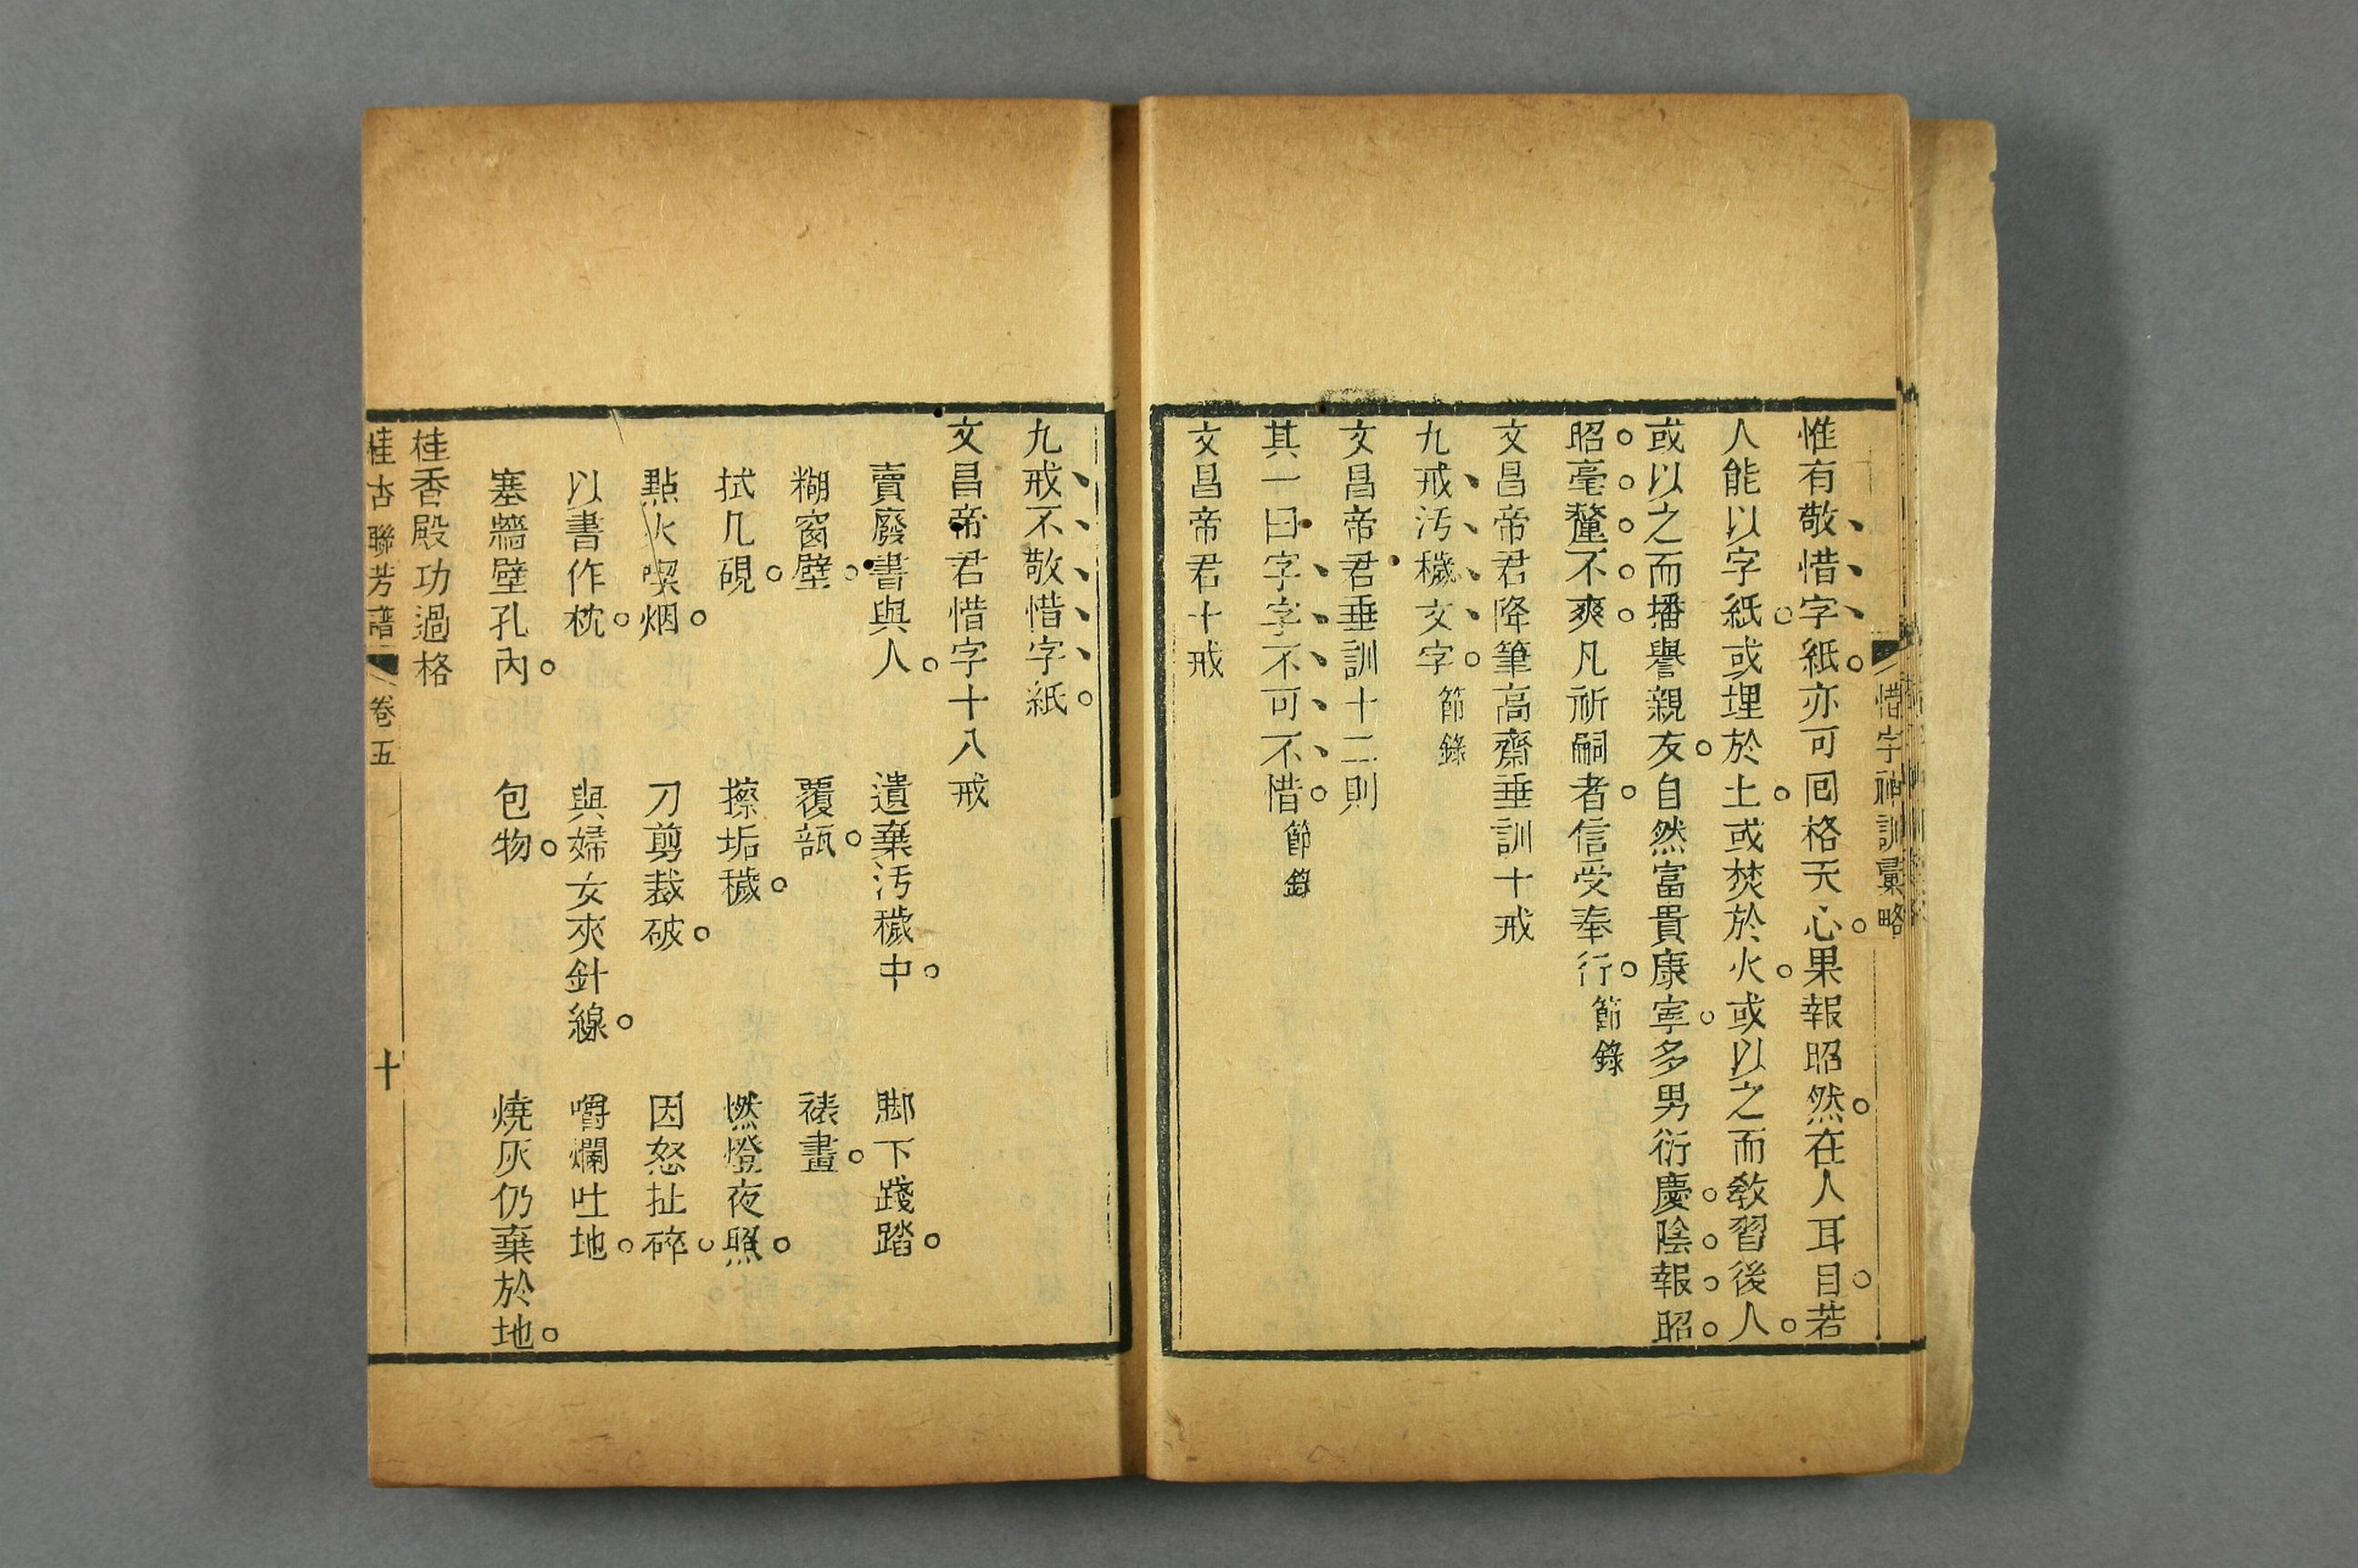 惜字神訓彙略
惟有敬惜字紙。亦可囘格天心。果報昭然。在人耳目。若
人能以字紙。或埋於土。或焚於火。或以之而敎習後人。
或以之而播譽親友。自然富貴康寧。多男衍慶。陰。報。昭。
昭。毫。釐。不。爽。凡祈嗣者。信受奉行。節錄
文昌帝君降筆高齋垂訓十戒
九戒汚穢文字。節錄
文昌帝君垂訓十二則
其一曰字字不可不惜。節錄
文昌帝君十戒
九戒不敬惜字紙。
文昌帝君惜字十八戒
賣廢書與人。 遺棄汚穢中。 脚下踐踏。
糊窗壁。 覆瓿。 裱畫。
拭几硯。 擦垢穢。 燃燈夜照。
點火喫烟。 刀剪裁破。 因怒扯碎。
以書作枕。 與婦女夾針線。 嚼爛吐地。
塞牆壁孔內。 包物。 燒灰仍棄於地。
桂香殿功過格
桂古聯芳譜 卷五 十